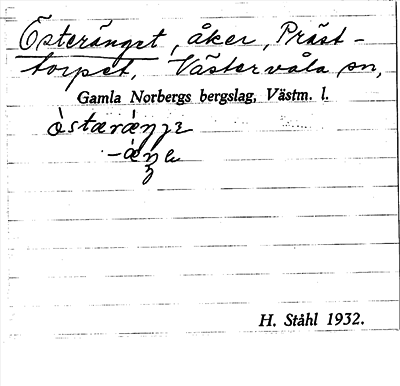 Österänget, åker, Präst-
torpet, Västervåla sn,
Gamla Norbergs bergslag, Västm. l.
H. Ståhl 1932.